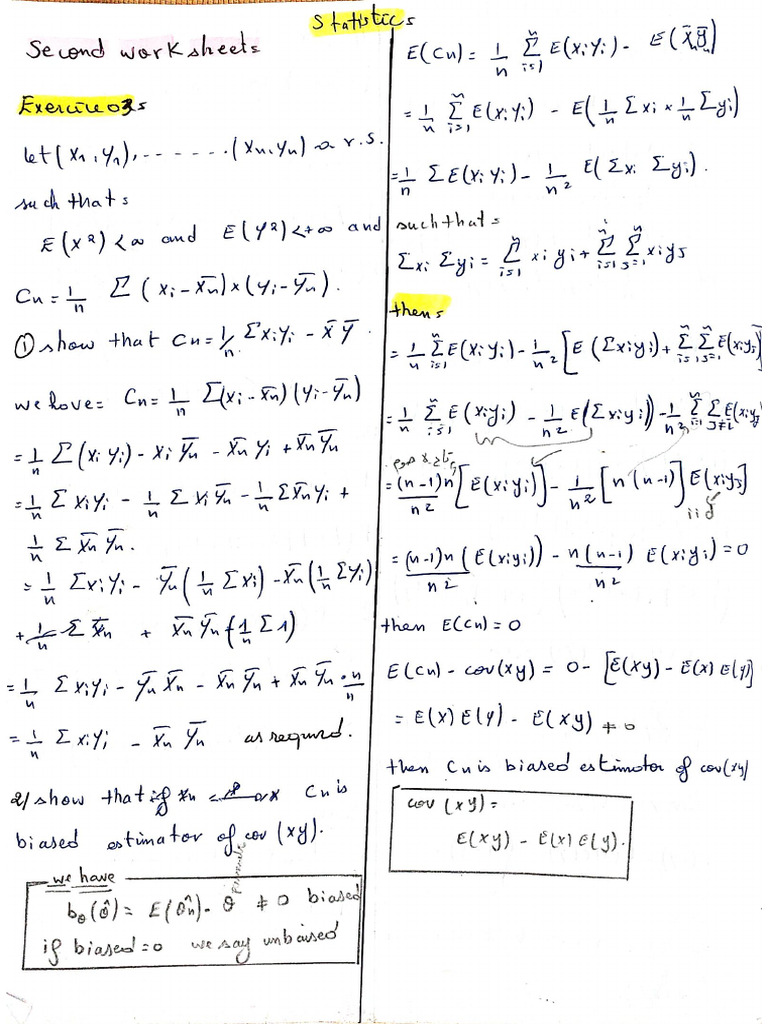 Statistics
Second worksheets
Exercice 03:
let (x₁, y₁), ....... (xn, yn) a r.s.
such that:
E(X²) < ∞ and E(Y²) < +∞ and
Cn = 1/n Σ (xi - x̄n) × (yi - ȳn).
① show that Cn = 1/n Σ xi yi - x̄ ȳ.
we have: Cn = 1/n Σ(xi - x̄n)(yi - ȳn)
= 1/n Σ(xi yi) - xi ȳn - x̄n yi + x̄n ȳn
= 1/n Σ xi yi - 1/n Σ xi ȳn - 1/n Σ x̄n yi +
1/n Σ x̄n ȳn.
= 1/n Σ xi yi - ȳn (1/n Σ xi) - x̄n (1/n Σ yi)
+ x̄n ȳn (1/n Σ 1)
= 1/n Σ xi yi - ȳn x̄n - x̄n ȳn + x̄n ȳn · n/n
= 1/n Σ xi yi - x̄n ȳn as required.
2/ show that Cn is
biased estimator of cov(xy).
we have
bθ(θ̂) = E(θ̂n) - θ ≠ 0 biased
if biased = 0 we say unbaised
E(Cn) = 1/n Σ(i=1, n) E(xi yi) - E(x̄ ȳ)
= 1/n Σ(i=1, n) E(xi yi) - E(1/n Σ xi × 1/n Σ yi)
= 1/n Σ E(xi yi) - 1/n² E(Σ xi Σ yi).
such that:
Σ xi Σ yi = Σ(i=1, n) xi yi + Σ(i=1) Σ(j=1, n) xi yj
then:
= 1/n Σ(i=1, n) E(xi yi) - 1/n² [E(Σ xi yi) + Σ(i=1, n) Σ(j=1, n) E(xi yj)]
= 1/n Σ(i=1, n) E(xi yi) - 1/n² E(Σ xi yi)) - 1/n² Σ(i=1, n) Σ(j≠i) E(xi yj)
= (n-1)n/n² [E(xi yi)] - 1/n² [n(n-1)] E(xi yj)
iid
= (n-1)n/n² (E(xi yi)) - n(n-1)/n² E(xi yi) = 0
then E(Cn) = 0
E(Cn) - cov(xy) = 0 - [E(xy) - E(x) E(y)]
= E(x) E(y) - E(xy) ≠ 0
then Cn is biased estimator of cov(xy)
cov(xy) =
E(xy) - E(x) E(y).